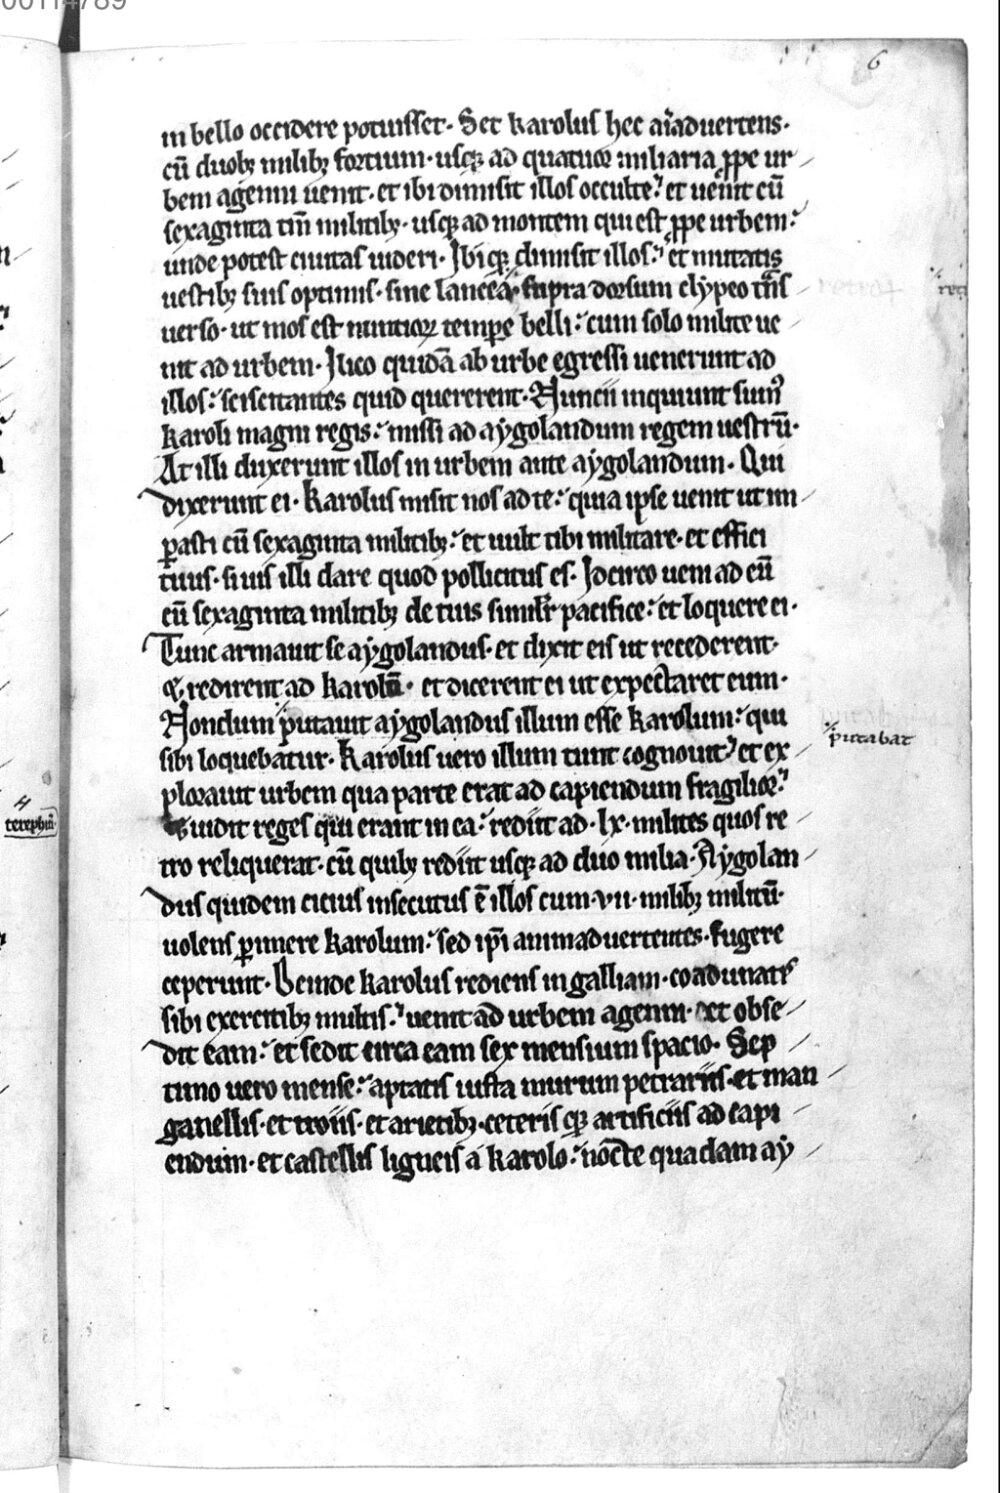 00114789
6
in bello occidere potuisset. Set karolus hec aīaduertens.
cū duobꝫ milibꝫ fortium. usqꝫ ad quatuor miliaria ꝓpe ur
bem agenni uenit. et ibi dimisit illos occulte. et uenit cū
sexaginta tm̄ militibꝫ. usqꝫ ad montem qui est ꝓpe urbem.
unde potest ciuitas uideri. Ibiqꝫ dimisit illos. et mutatis
uestibꝫ suis optimis. sine lancea. supra dorsum clypeo
uerso. ut mos est nuntioꝝ temꝑe belli. cum solo milite ue
nit ad urbem. Ilico quidā ab urbe egressi uenerunt ad
illos. sciscitantes quid quererent. Nuncii inquiunt sumꝰ
karoli magni regis. missi ad aygolandum regem uestrū.
At illi duxerunt illos in urbem ante aygolandum. Qui
dixerunt ei. karolus misit nos ad te. quia ipse uenit ut im
ꝑasti cū sexaginta militibꝫ. et uult tibi militare. et effici
tuus. si uis illi dare quod pollicitus es. Idcirco ueni ad eū
cū sexaginta militibꝫ de tuis similiter pacifice. et loquere ei.
Tunc armauit se aygolandus. et dixit eis ut recederent.
redirent ad karolū. et dicerent ei ut expectaret eum.
Nondum putauit aygolandus illum esse karolum. qui
putabat
sibi loquebatur. karolus uero illum tunc cognouit. et ex
plorauit urbem qua parte erat ad capiendum fragilior.
uidit reges qui erant in ea. rediit ad .lx. milites quos re
tetephin̄
tro reliquerat. cū quibꝫ rediit usqꝫ ad duo milia. Aygolan
dus quidem cicius insecutus ē illos cum .vii. milibꝫ militū.
uolens ꝑimere karolum. sed ip̄i animaduertentes. fugere
ceperunt. Deinde karolus rediens in galliam. coadunatis
sibi exercitibꝫ multis. uenit ad urbem agenni. et obse
dit eam. et sedit circa eam sex mensium spacio. Sep
timo uero mense. aptatis iuxta murum petrariis. et man
ganellis. et troiis. et arietibꝫ. ceterisqꝫ artificiis ad capi
endum. et castellis ligneis a karolo. nocte quadam ay